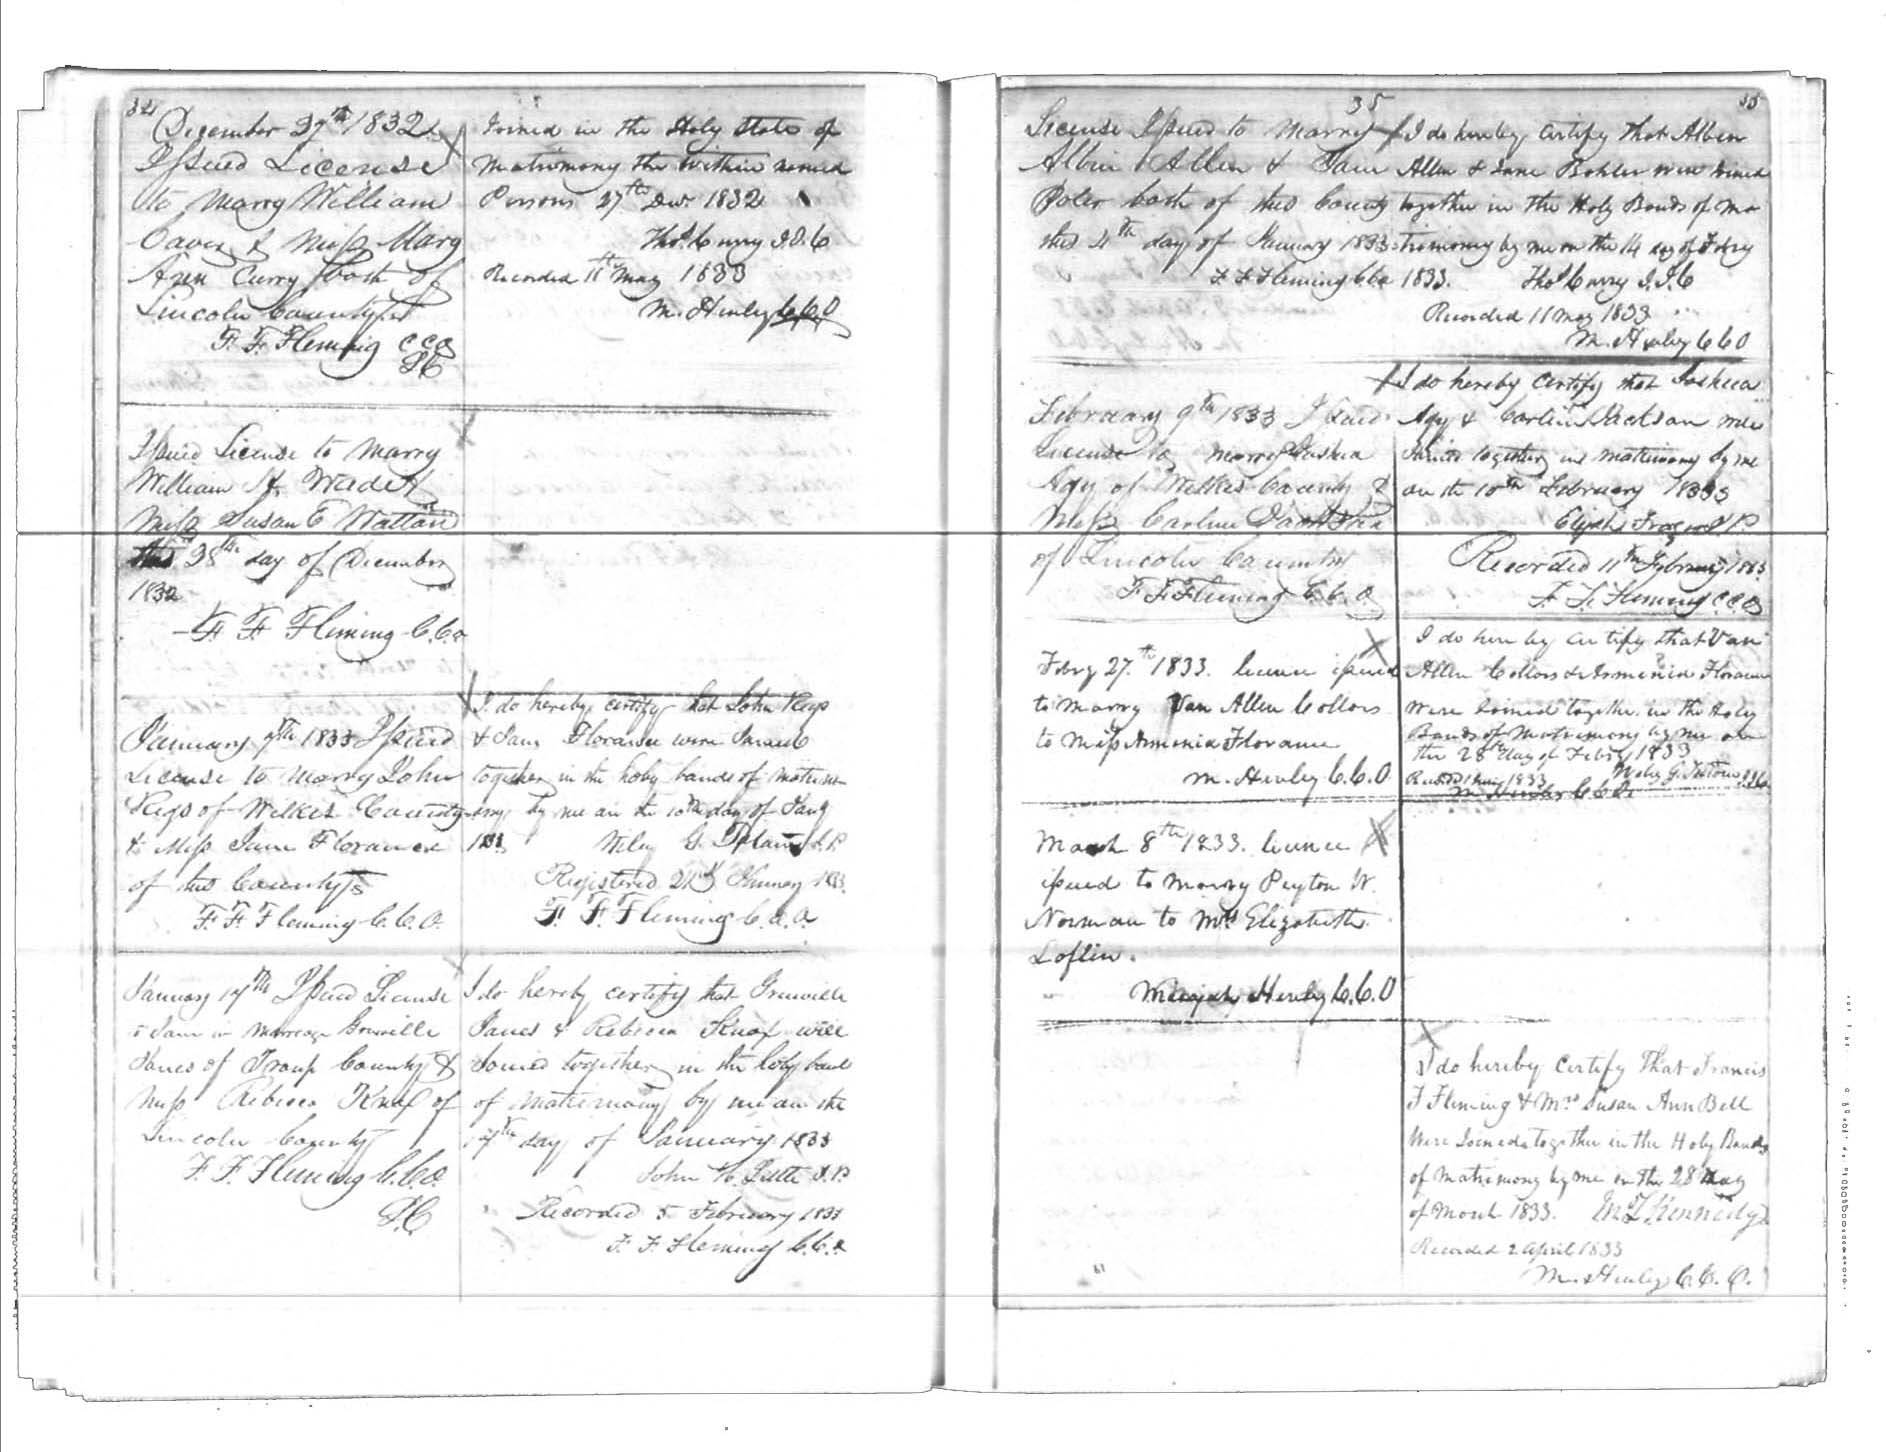 34
December 27th 1832
Issued License
to Marry William
Cavey & Miss Mary
Ann Curry both of
Lincoln County
F. F. Fleming C C O
Joined in the Holy State of
Matrimony the within named
Persons 27th Decr 1832
Thos. Curry J.I.C
Recorded 11th May 1833
M. Henley C.C.O
Issued License to Marry
William H. Wade &
Miss Susan E Wattan
this 28th day of December
1832
F. F. Fleming C.C.O
January 7th 1833 Issued
License to Marry John
Reps of Wilkes County
& Miss Jane Florance
of this County
F. F. Fleming C.C.O.
I do hereby certify that John Reps
& Jane Florance were Joined
together in the holy bands of matrim-
ony by me on the 10th day of Jany
1833 Wiley G. J.P
Registered 21st January 1833
F. F. Fleming C.C.O.
January 17th Issued License
to Join in Marriage Grenville
Janes of Troup County &
Miss Rebecca Knox of
Lincoln County
F. F. Fleming C.C.O.
I do hereby certify that Grenville
Janes & Rebecca Knox were
Joined together in the holy bands
of matrimony by me on the
17th day of January 1833
John H. Little J.P.
Recorded 5 February 1833
F. F. Fleming C.C.O
35
35
License Issued to Marry
Albin Allen & Jane
Boler both of this County
this 4th day of January 1833
F F Fleming C.C.O
I do hereby certify that Albin
Allen & Jane Bohler were Joined
together in the Holy Bands of Ma
trimony by me on the 14 day of Febry
1833. Thos Curry J.I.C
Recorded 11 May 1833
M. Henley C C O
February 9th 1833 Issued
License to Marry Joshua
Agy of Wilkes County &
Miss Carline Jackson
of Lincoln County
F. F. Fleming C.C.O.
I do hereby certify that Joshua
Agy & Carline Jackson were
Joined together in matrimony by me
on the 10th February 1833
Elijah J.P.
Recorded 11th February 1833
F. F. Fleming C.C.O
Febry 27th 1833. licence issued
to Marry Van Allen Collars
to Miss Armenia Florance
M. Henley C.C.O
I do here by certify that Van
Allen Collars & Armenia Florance
Were Joined together in the Holy
Bands of Matrimony by me on
the 28th day of Febry 1833
Wiley G. J.I.C.
Recd 1833
M Henley C C O.
March 8th 1833. licence
issued to Marry Peyton W.
Norman to Mrs Elizabeth
Loflin.
Micajah Henley C.C.O
I do hereby Certify that Francis
F Fleming & Mrs Susan Ann Bell
Were Joined together in the Holy Bands
of Matrimony by me on the 28 day
of March 1833. Kennedy
Recorded 2 April 1833
M. Henley C.C.O.